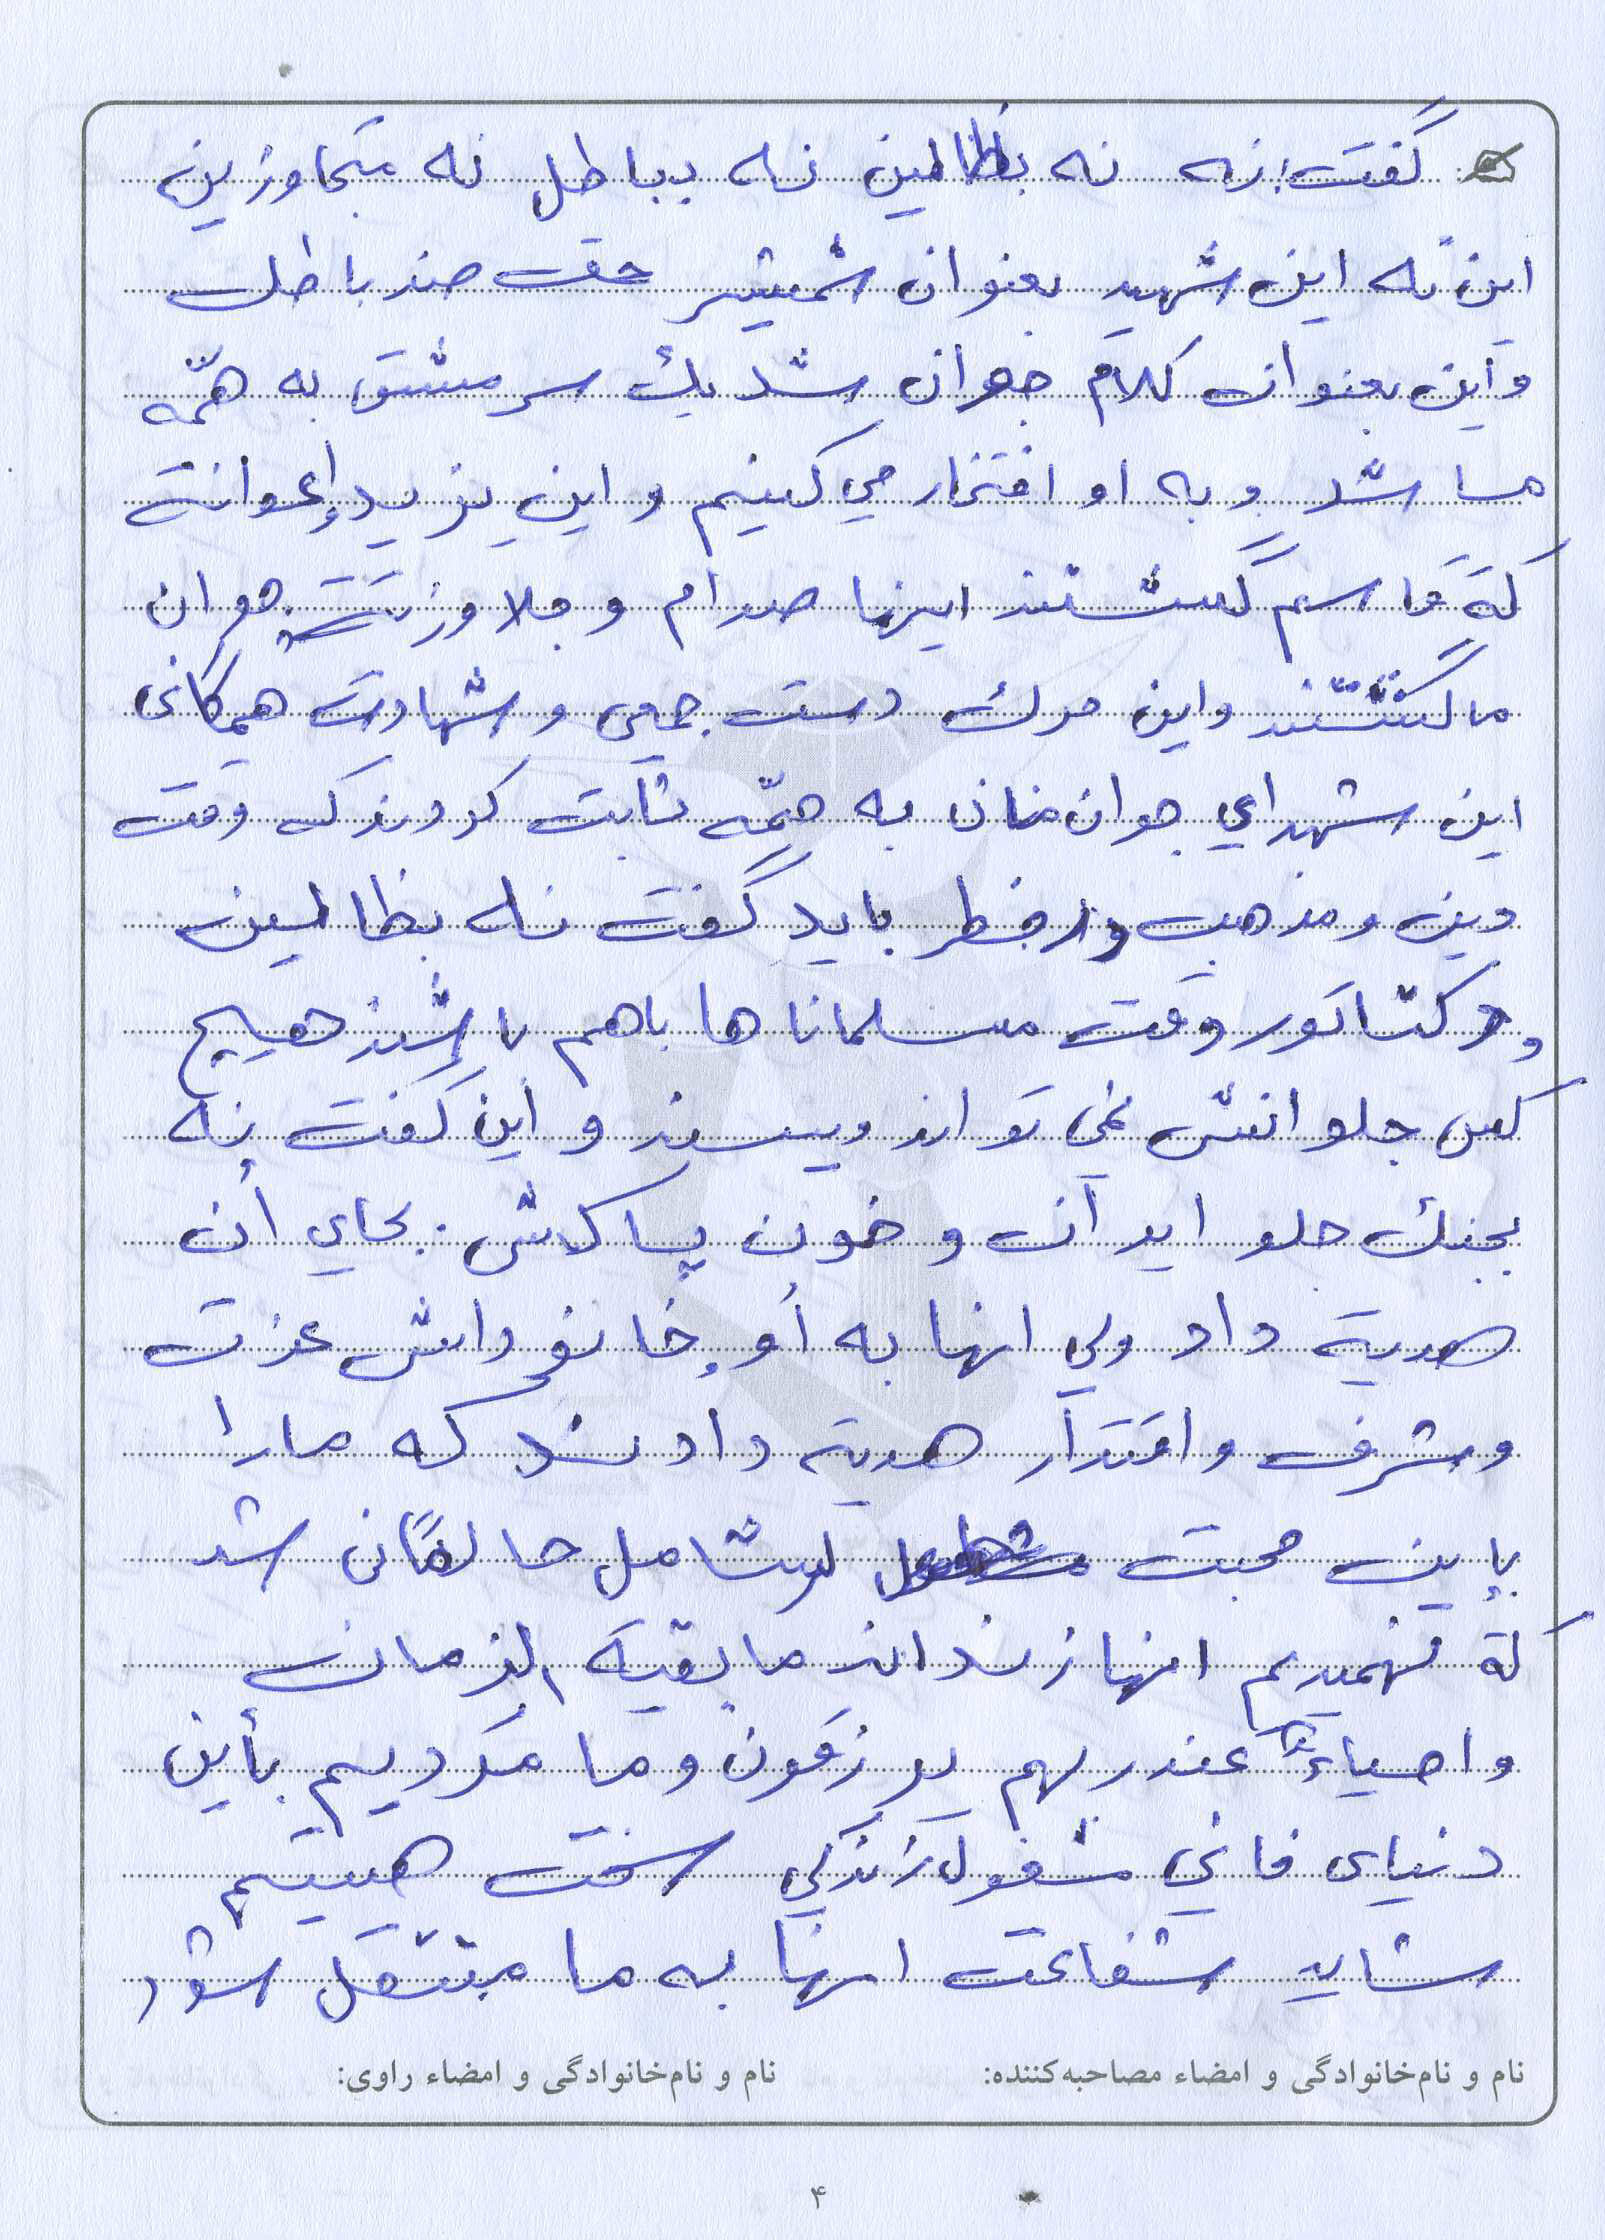 گفت: نه نه بظالمین نه بباطل نه متجاوزین
این نه این شهید بعنوان شمشیر حق ضد باطل
و این بعنوان کلام جوان شد یک سرمشق به همّه
ما شد و به او افتخار می کنیم و این یزید وإعوانة
کة قاسم کشتند اینها صدام و جلاوزتة جوان
ما کشتند واین مرک دست جمعی و شهادت همکانی
این شهدای جوان منان به همّه ثابت کردند که وقت
دین و مذهب در خطر باید گفت نه بظالمین
و دکتاتور وقت مسلمانا ها باهم باشند هیچ
کس جلوانش نمی تواند ویسند و این کفت نه
بجنک جلو ایران و خون پاکش. بجای أن
هدیة داد ولی انها به أو و خانودانش عزت
و شرف و اقتدار هدیة دادند که مارا
بإین محبت شامل حالمان شد
کة فهمیدیم انها زنداند ما بقیة الزمان
و احیاءً عند ربهم یرزقون و ما مردیم بأین
دنیای فانی مشغول زندکی سخت هستیم
شاید شفاعت انها به ما منتقل شود
نام و نام‌خانوادگی و امضاء مصاحبه‌کننده: نام و نام‌خانوادگی و امضاء راوی:
۴